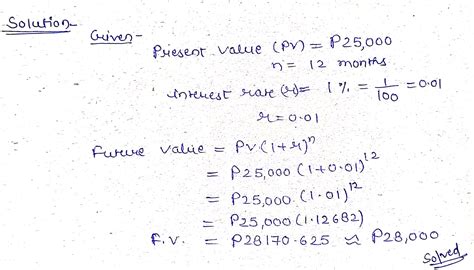 Solution-
Given-
Present value (PV) = P25,000
n = 12 months
interest rate (r) = 1 % = 1/100 = 0.01
r = 0.01
Future value = PV(1+r)^n
= P25,000 (1+0.01)^12
= P25,000 (1.01)^12
= P25,000 (1.12682)
F.V. = P28170.625 ≈ P28,000
Solved